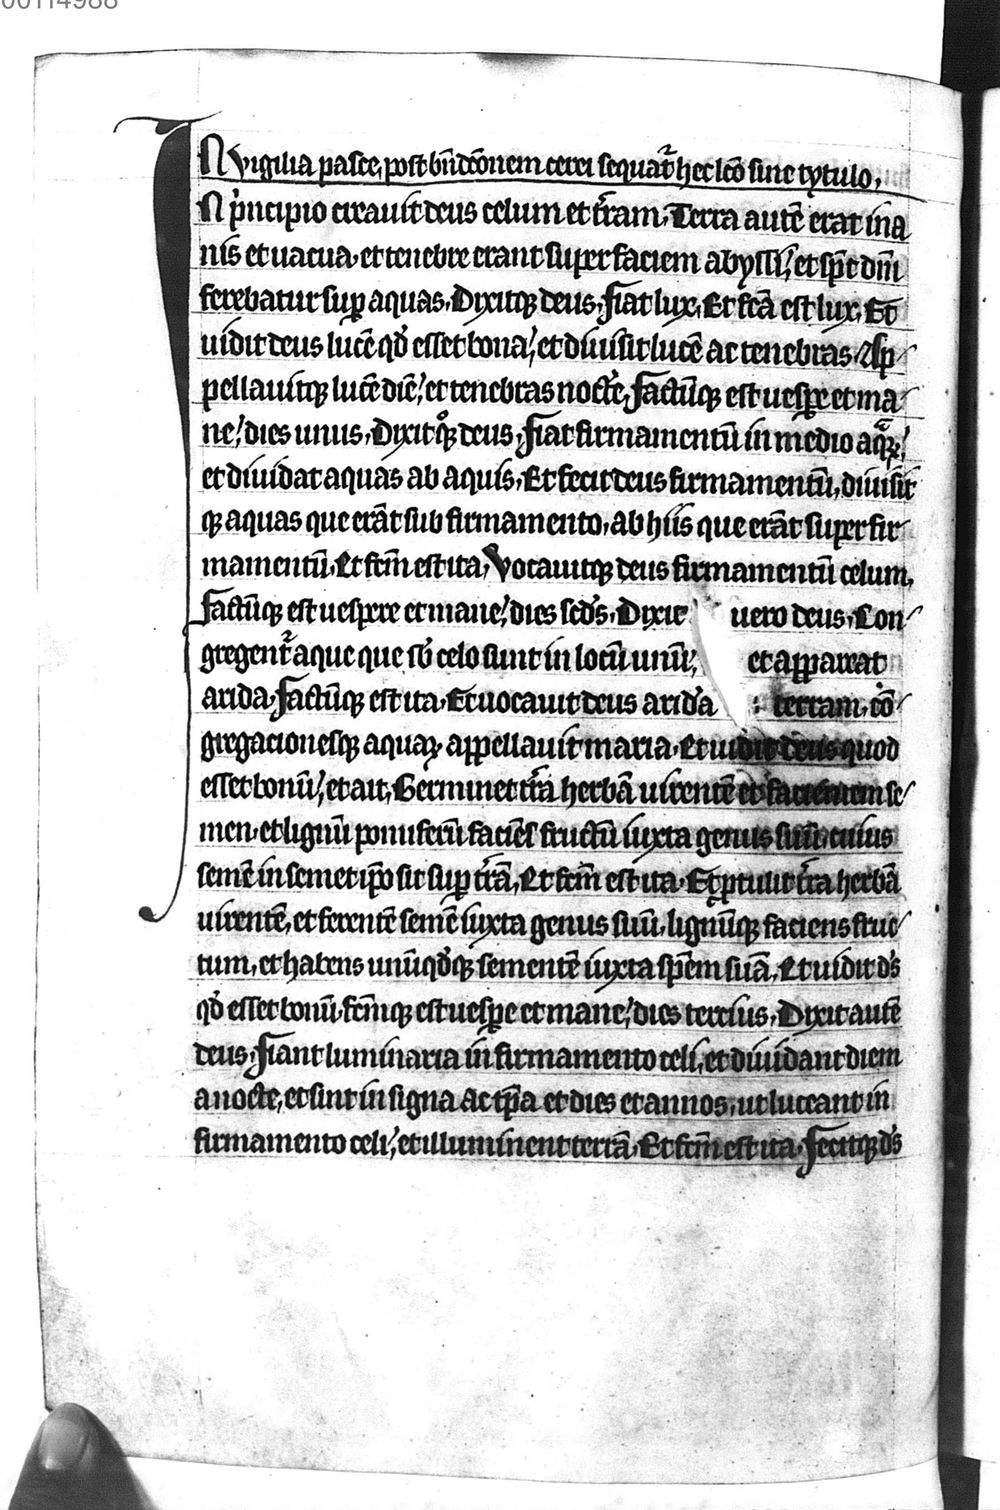 00114988
IN vigilia pasce, post bn̄dc̄onem cerei sequat᷑ hec lcō sine tytulo,
IN p̍ncipio creauit deus celum et tr̄am, Terra autē erat ina
nis et uacua, et tenebre erant super faciem abyssi, et sp̄c dn̄i
ferebatur sup̱ aquas, Dixitqꝫ deus, fiat lux, Et fcā est lux, Et
uidit deus lucē qđ esset bona, et diuisit lucē ac tenebras, Ap
pellauitqꝫ lucē diē, et tenebras noctē, factūqꝫ est uesꝑe et ma
ne, dies unus, Dixit qͦꝫ deus, fiat firmamentū in medio aqͣꝝ,
et diuidat aquas ab aquis, Et fecit deus firmamentū, diuisit
qꝫ aquas que erāt sub firmamento, ab hiis que erāt super fir
mamentū, Et fcm̄ est ita, Vocauitqꝫ deus firmamentū celum,
factūqꝫ est uespere et mane, dies scd̄s, Dixit uero deus, Con
gregent᷑ aque que sb̄ celo sunt in locū unū, et appareat
arida, factūqꝫ est ita, Et uocauit deus aridā terram, cō
gregacionesqꝫ aquaꝝ appellauit maria, Et uidit deus quod
esset bonū, et ait, Germinet tr̄a herbā uirentē et facientem se
men, et lignū pomiferū faciēs fructū iuxta genus suū, cuius
semē in semet ip̄o sit sup̱ tr̄ā, Et fcm̄ est ita, Et ꝓtulit tr̄a herbā
uirentē, et ferentē semē iuxta genus suū, lignūqꝫ faciens fruc
tum, et habens unūqđqꝫ sementē iuxta sp̄em suā, Et uidit ds̄
qđ esset bonū, fcm̄qꝫ est uesꝑe et mane, dies tercius, Dixit autē
deus, fiant luminaria in firmamento celi, et diuidant diem
a nocte, et sint in signa Ac tp̄a et dies et annos, ut luceant in
firmamento celi, et illuminent terrā, Et fcm̄ est ita, fecitqꝫ ds̄